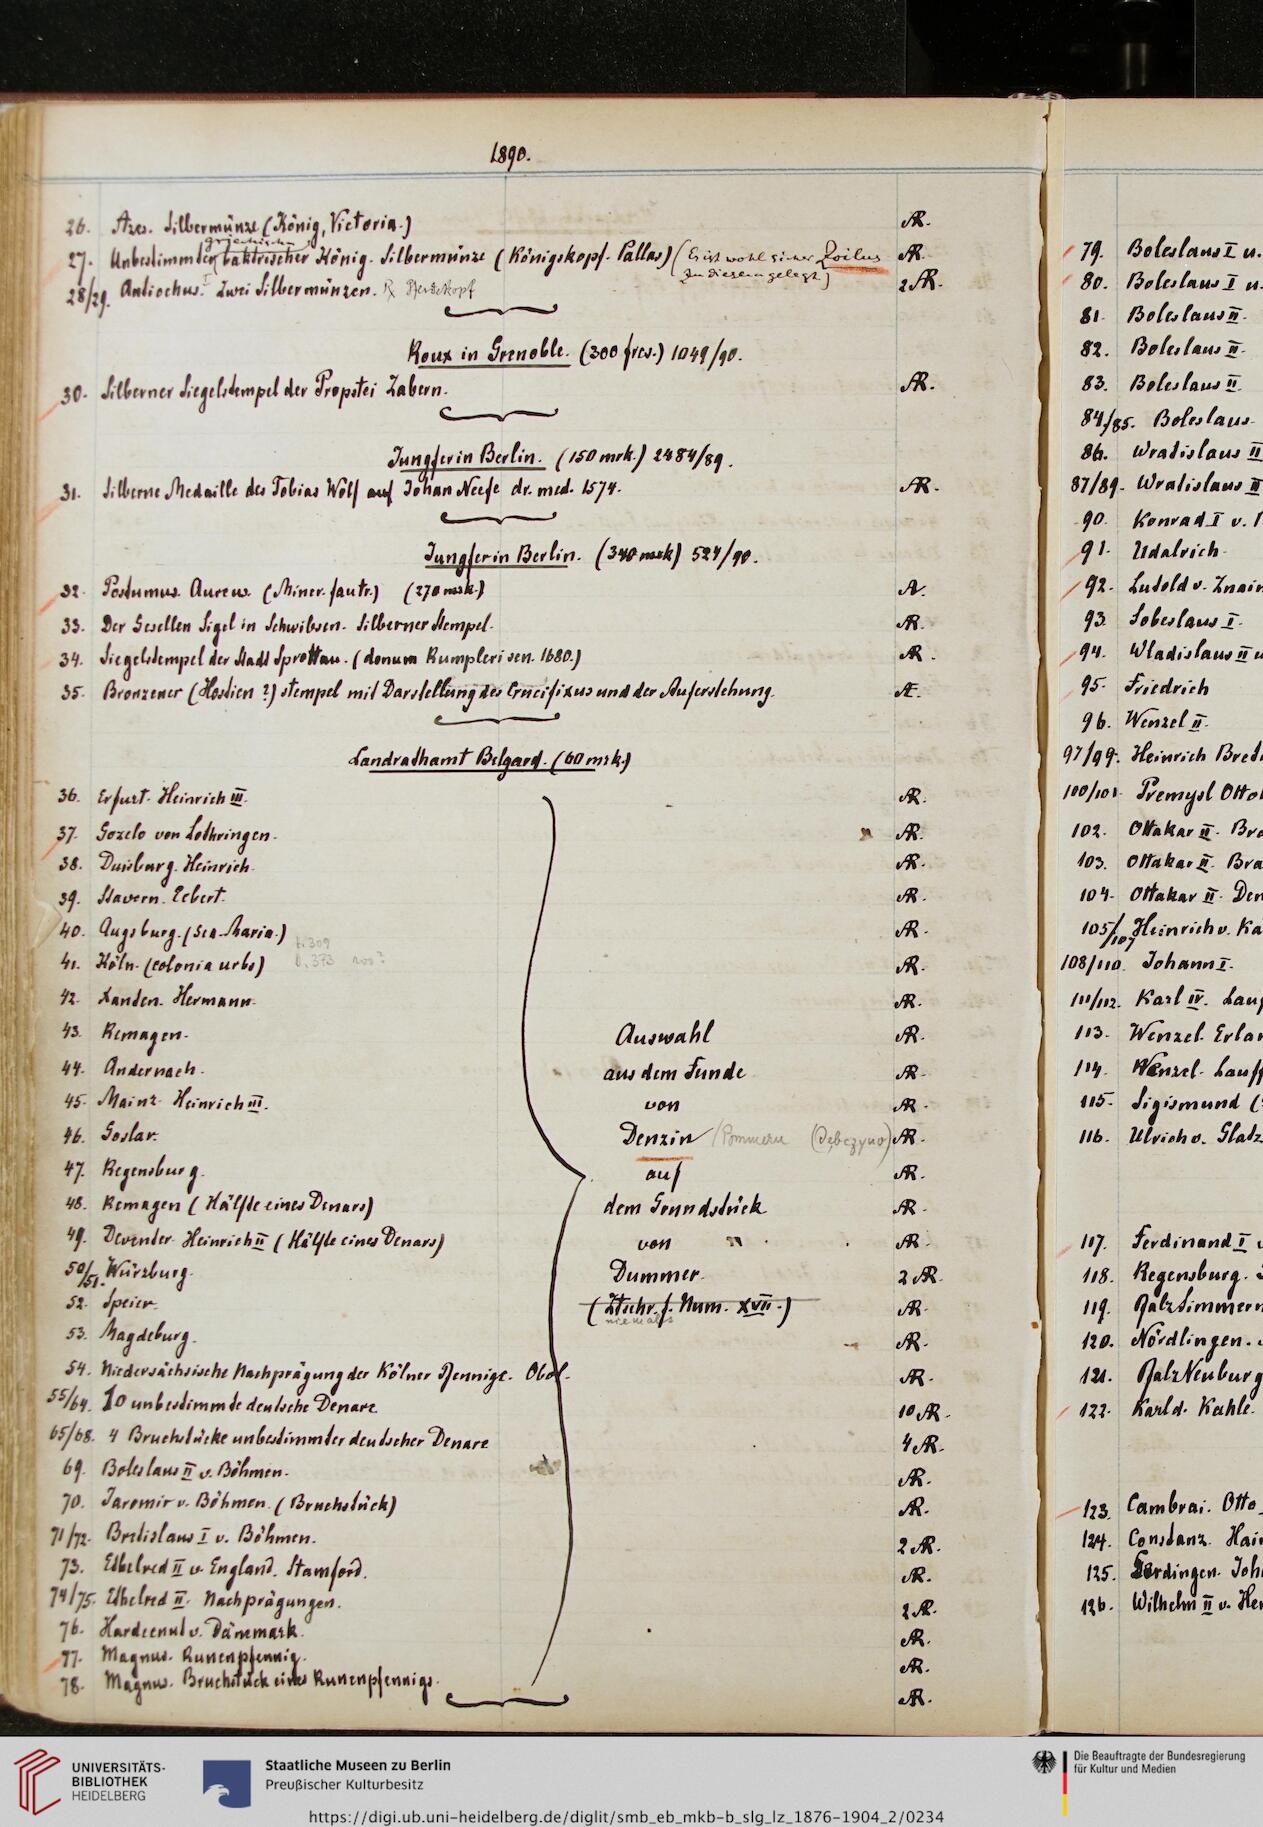 1890.
26. Azes. Silbermünze (König, Victoria.) AR.
griechischer
27. Unbestimmter baktrischer König. Silbermünze (Königskopf. Pallas) (Es ist wohl sicher Zoilus AR.
zu diesem gelegt)
28/29. Antiochus I. Zwei Silbermünzen. Rs Pferdekopf 2 AR.
Roux in Grenoble. (300 frcs.) 1049/90.
30. Silberner Siegelstempel der Propstei Zabern. AR.
Jungfer in Berlin. (150 mrk.) 2484/89.
31. Silberne Medaille des Tobias Wolf auf Johan Neefe dr. med. 1574. AR.
Jungfer in Berlin. (340 mrk) 524/90.
32. Postumus. Aureus. (Miner. fautr.) (270 mrk.) A.
33. Der Gesellen Sigel in Schwibsen. Silberner Stempel. AR.
34. Siegelstempel der Stadt Sprottau. (donum Rumpleri sen. 1680.) AR.
35. Bronzener (Hostien?) stempel mit Darstellung des Crucifixus und der Auferstehung. Æ.
Landrathamt Belgard. (60 mrk.)
36. Erfurt. Heinrich III. AR.
37. Gozelo von Lothringen. AR.
38. Duisburg. Heinrich. AR.
39. Stavern. Ecbert. AR.
40. Augsburg. (Sca. Maria.) AR.
41. Köln. (colonia urbs) AR.
42. Xanden. Hermann. AR.
43. Remagen. Auswahl AR.
44. Andernach. aus dem Funde AR.
45. Mainz. Heinrich III. von AR.
46. Goslar. Denzin /Pommern (Dębczyno) AR.
47. Regensburg. auf AR.
48. Remagen (Hälfte eines Denars) dem Grundstück AR.
49. Deventer. Heinrich II (Hälfte eines Denars) von AR.
50/51. Würzburg. Dummer. 2 AR.
52. Speier. (Ztschr. f. Num. XVII.) AR.
niemals
53. Magdeburg. AR.
54. Niedersächsische Nachprägung der Kölner Pfennige. Obol. AR.
55/64. 10 unbestimmte deutsche Denare 10 AR.
65/68. 4 Bruchstücke unbestimmter deutscher Denare 4 AR.
69. Boleslaus II v. Böhmen. AR.
70. Jaromir v. Böhmen. (Bruchstück) AR.
71/72. Bretislaus I v. Böhmen. 2 AR.
73. Ethelred II v. England. Stamford. AR.
74/75. Ethelred II. Nachprägungen. 2 AR.
76. Hardecnut v. Dänemark. AR.
77. Magnus. Runenpfennig. AR.
78. Magnus. Bruchstück eines Runenpfennigs. AR.
79. Boleslaus I u.
80. Boleslaus I u.
81. Boleslaus II.
82. Boleslaus II.
83. Boleslaus II.
84/85. Boleslaus
86. Wratislaus II
87/89. Wratislaus II
90. Konrad I v.
91. Udalrich.
92. Lutold v. Znaim
93. Sobeslaus I.
94. Wladislaus II u
95. Friedrich
96. Wenzel II.
97/99. Heinrich Breti
100/101. Premysl Ottok
102. Ottakar II. Bra
103. Ottakar II. Bra
104. Ottakar II. Den
105/107. Heinrich v. Kä
108/110. Johann I.
111/112. Karl IV. Lauf
113. Wenzel. Erlan
114. Wenzel. Lauff
115. Sigismund (
116. Ulrich v. Glatz
117. Ferdinand I
118. Regensburg.
119. Pfalz Simmern
120. Nördlingen.
121. Pfalz Neuburg
122. Karl d. Kahle.
123. Cambrai. Otto
124. Constanz. Hain
125. Joh
126. Wilhelm II v. He
UNIVERSITÄTS-
BIBLIOTHEK
HEIDELBERG
Staatliche Museen zu Berlin
Preußischer Kulturbesitz
Die Beauftragte der Bundesregierung
für Kultur und Medien
https://digi.ub.uni-heidelberg.de/diglit/smb_eb_mkb-b_slg_lz_1876-1904_2/0234